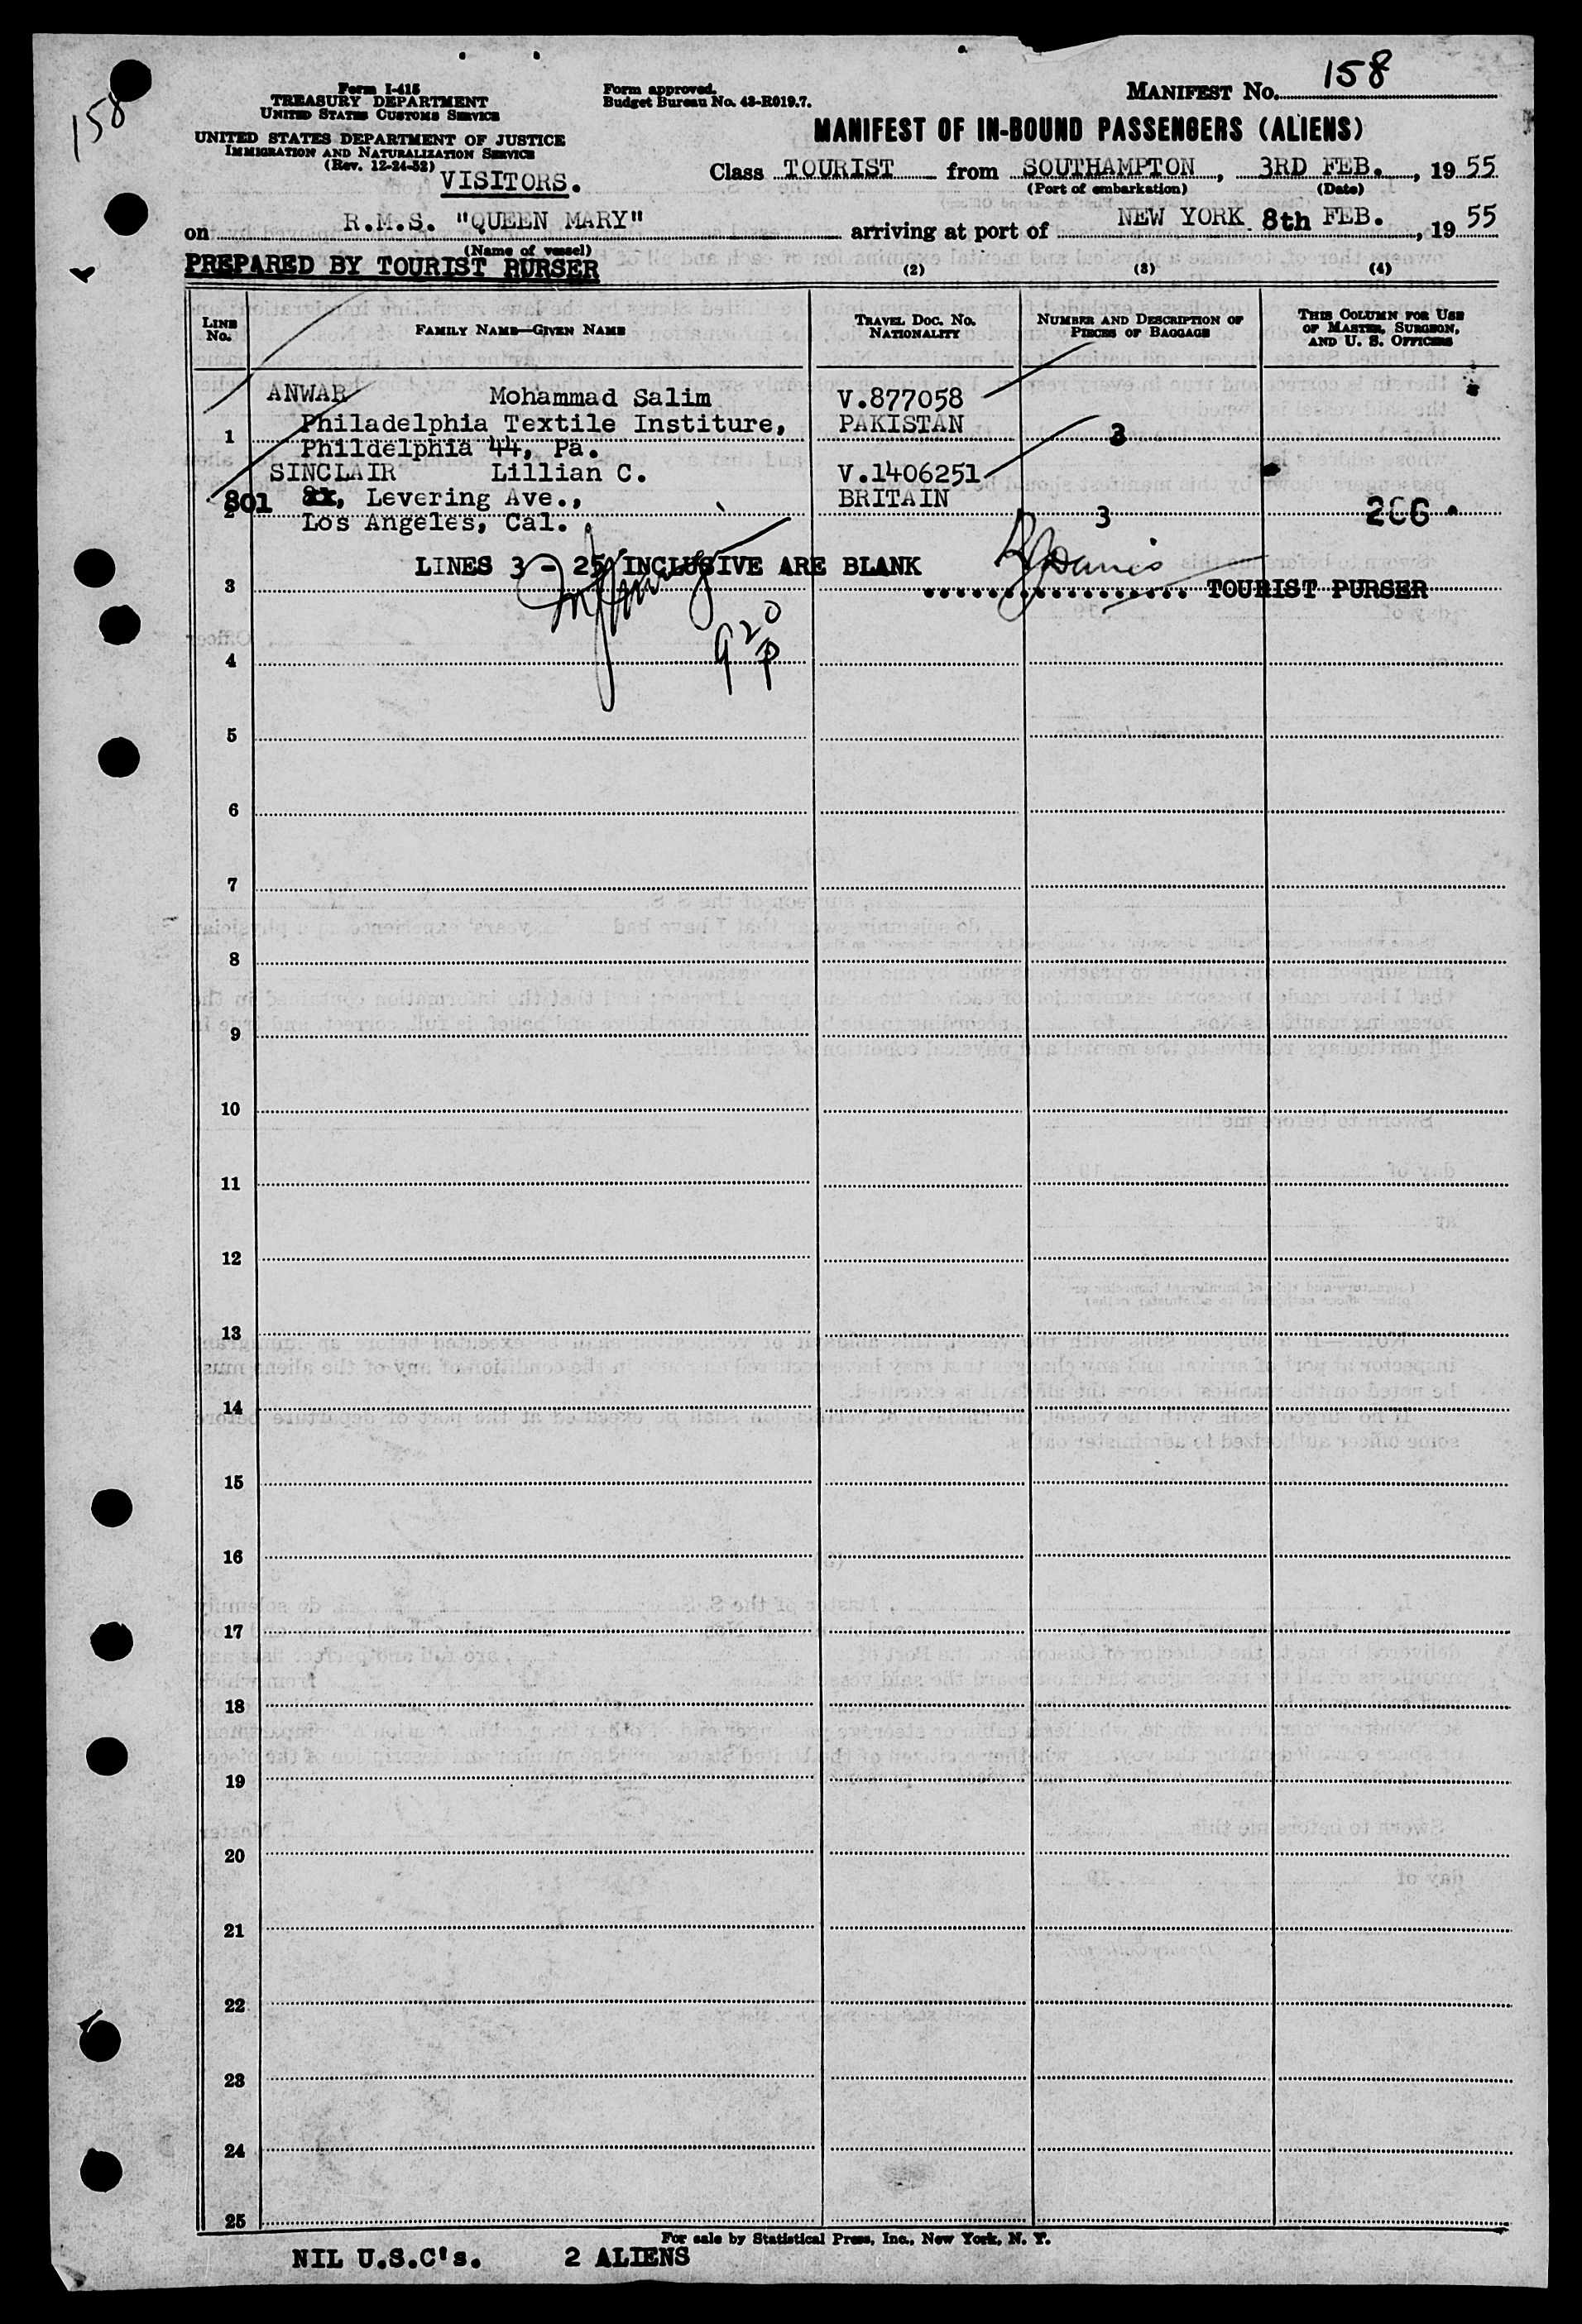 158
158
Form I-415
TREASURY DEPARTMENT
UNITED STATES CUSTOMS SERVICE
Form approved.
Budget Bureau No. 43-R019.7.
MANIFEST No. 158
UNITED STATES DEPARTMENT OF JUSTICE
IMMIGRATION AND NATURALIZATION SERVICE
(Rev. 12-24-52)
VISITORS.
MANIFEST OF IN-BOUND PASSENGERS (ALIENS)
Class TOURIST from SOUTHAMPTON, 3RD FEB., 1955
(Port of embarkation) (Date)
on R.M.S. "QUEEN MARY" arriving at port of NEW YORK 8th FEB., 1955
(Name of vessel)
PREPARED BY TOURIST PURSER
(2) (3) (4)
LINE No. FAMILY NAME—GIVEN NAME TRAVEL DOC. No. NATIONALITY NUMBER AND DESCRIPTION OF PIECES OF BAGGAGE THIS COLUMN FOR USE OF MASTER, SURGEON, AND U. S. OFFICERS
ANWAR Mohammad Salim V.877058
Philadelphia Textile Institure, PAKISTAN
1 3
Phildelphia 44, Pa.
SINCLAIR Lillian C. V.1406251
801 Levering Ave., BRITAIN
2 Los Angeles, Cal. 3
LINES 3 - 25 INCLUSIVE ARE BLANK
3 TOURIST PURSER
920
P
4
5
6
7
8
9
10
11
12
13
14
15
16
17
18
19
20
21
22
23
24
25
For sale by Statistical Press, Inc., New York, N. Y.
NIL U.S.C's. 2 ALIENS